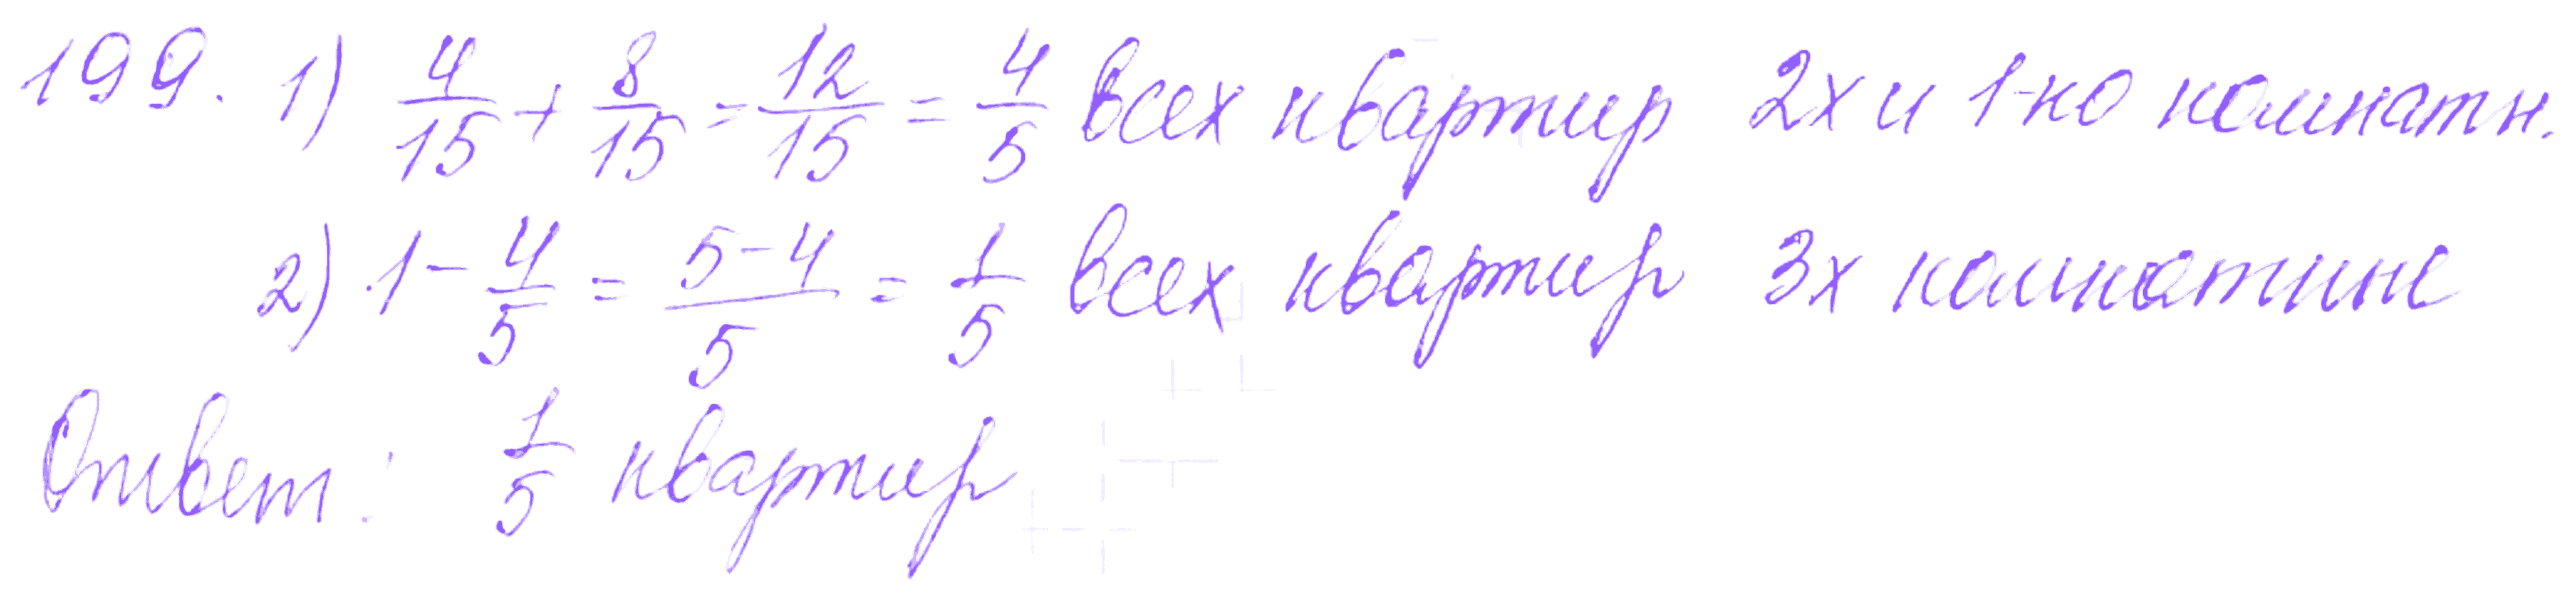 199. 1) 4/15 + 8/15 = 12/15 = 4/5 всех квартир 2х и 1-но комнатн.
2) 1 - 4/5 = (5-4)/5 = 1/5 всех квартир 3х комнатные
Ответ: 1/5 квартир